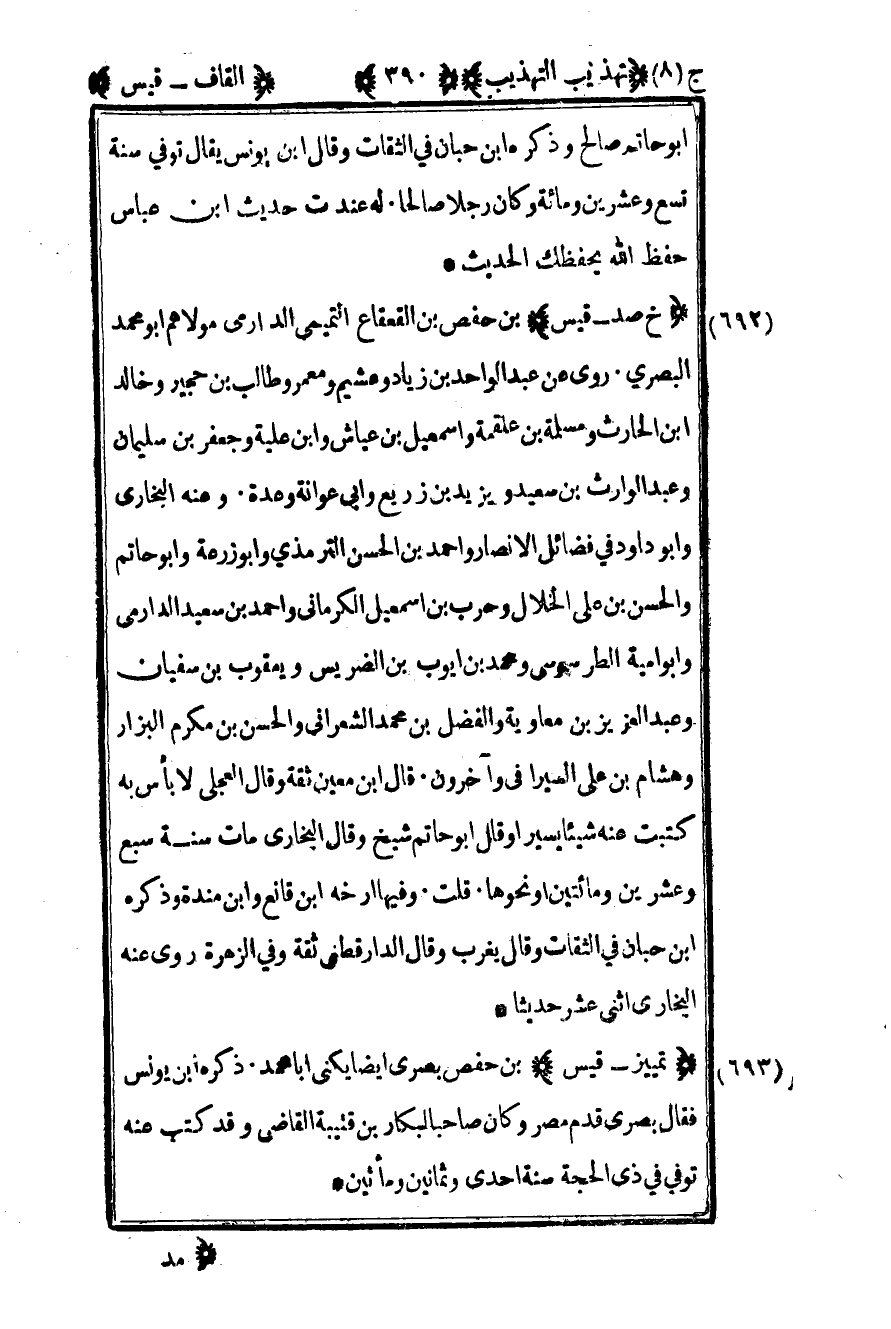 ج (٨) ﴿تهذيب التهذيب﴾ ﴿ ٣٩٠ ﴾ ﴿ القاف ــ قيس ﴾
ابوحاتم صالح وذكره ابن حبان في الثقات وقال ابن يونس يقال توفي سنة
تسع وعشرين ومائة وكان رجلا صالحا٠ له عند ت حديث ابن عباس
حفظ الله يحفظك الحديث *
(٦٩٢) ﴿ خ صد ــ قيس ﴾ بن حفص بن القعقاع التميمي الدارمى مولاهم ابو محمد
البصري ٠ روى عن عبد الواحد بن زياد وهشيم ومعمر وطالب بن حجير وخالد
ابن الحارث ومسلمة بن علقمة واسمعيل بن عياش وابن علية وجعفر بن سليمان
وعبد الوارث بن سعيد ويزيد بن زريع وابي عوانة وعدة ٠ وعنه البخارى
وابو داود في فضائل الانصار واحمد بن الحسن الترمذي وابو زرعة وابوحاتم
والحسن بن على الخلال وحرب بن اسمعيل الكرمانى واحمد بن سعيد الدارمى
وابو امية الطرسوسى ومحمد بن ايوب بن الضريس ويعقوب بن سفيان
وعبد العزيز بن معاوية والفضل بن محمد الشعرانى والحسن بن مكرم البزار
وهشام بن على السيرافى وآخرون ٠ قال ابن معين ثقة وقال العجلى لا بأس به
كتبت عنه شيئا يسيرا وقال ابوحاتم شيخ وقال البخارى مات سنة سبع
وعشرين ومائتين او نحوها ٠ قلت ٠ وفيها ارخه ابن قانع وابن مندة وذكره
ابن حبان في الثقات وقال يغرب وقال الدارقطنى ثقة وفي الزهرة روى عنه
البخارى اثنى عشر حديثا *
(٦٩٣) ﴿ تمييز ــ قيس ﴾ بن حفص بصرى ايضا يكنى ابا محمد ٠ ذكره ابن يونس
فقال بصرى قدم مصر وكان صاحبا لبكار بن قتيبة القاضى وقد كتب عنه
توفي في ذى الحجة سنة احدى وثمانين ومأتين *
﴿ مد